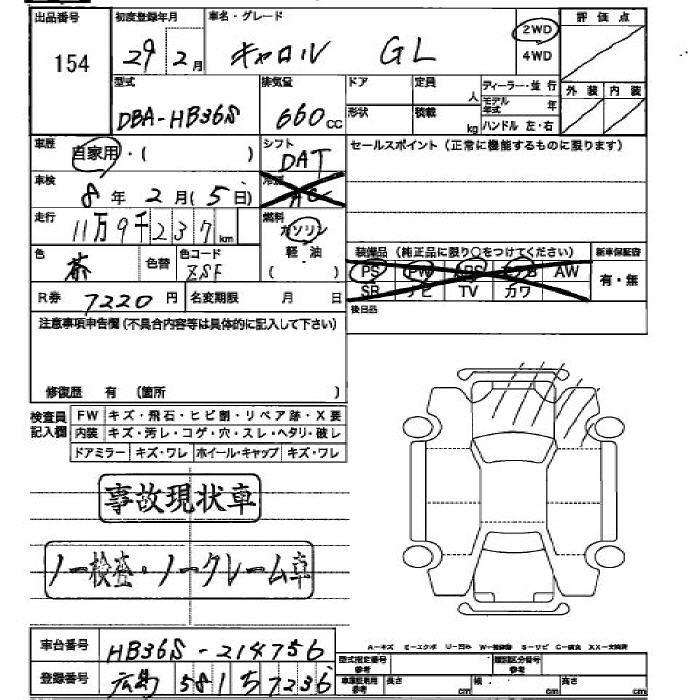 出品番号 初度登録年月 車名・グレード 2WD 評価点
154 29 2月 キャロル GL 4WD
型式 排気量 ドア 定員 人 ディーラー・並行 外装 内装
DBA-HB36S 660cc 形状 積載 kg モデル年式 年
ハンドル 左・右
車歴 自家用・( ) シフト DAT セールスポイント(正常に機能するものに限ります)
車検 8年 2月(5日) 冷房 AC
走行 11万9千237km 燃料 ガソリン 軽・油 ( )
装備品(純正品に限り○をつけてください) 新車保証書
色 茶 色替 色コード ZSF PS PW ABS エアB AW 有・無
SR ナビ TV カワ
R券 7220円 名変期限 月 日 後日品
注意事項申告欄(不具合内容等は具体的に記入して下さい)
修復歴 有 (箇所 )
検査員記入欄 FW キズ・飛石・ヒビ割・リペア跡・X要
内装 キズ・汚レ・コゲ・穴・スレ・ヘタリ・破レ
ドアミラー キズ・ワレ ホイール・キャップ キズ・ワレ
事故現状車
ノー検査・ノークレーム車
A-キズ E-エクボ U-凹み W-補修跡 S-サビ C-腐食 XX-交換済
車台番号 HB36S-214756 型式指定番号 参考 類別区分番号 参考
登録番号 広島 581 ち 7236 車庫証明用 参考 長さ cm 幅 cm 高さ cm